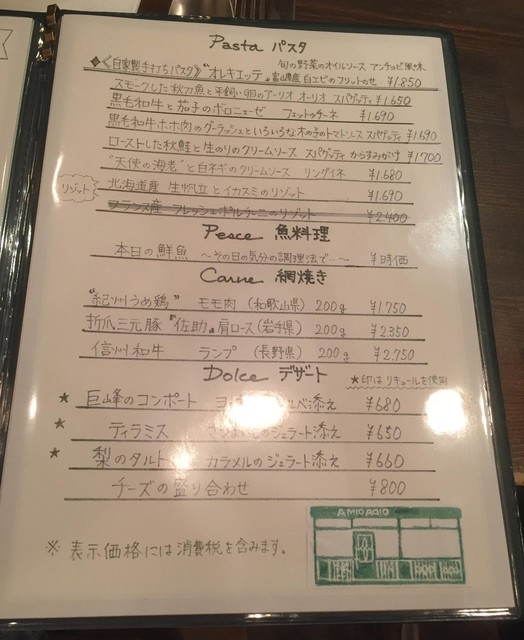 Pasta パスタ
◆《自家製手打ちパスタ》"オレキエッテ" 旬の野菜のオイルソース アンチョビ風味
富山県産 白エビのフリットのせ ¥1,850
スモークした秋刀魚と平飼い卵のアーリオ オーリオ スパゲッティ ¥1,650
黒毛和牛と茄子のボロニェーゼ フェットゥチーネ ¥1,690
黒毛和牛ホホ肉のグーラッシュといろいろな木の子のトマトソース スパゲッティ ¥1,690
ローストした秋鮭と生のりのクリームソース スパゲッティ からすみがけ ¥1,700
"天使の海老"と白ネギのクリームソース リングイネ ¥1,680
リゾット 北海道産 生帆立とイカスミのリゾット ¥1,690
フランス産 フレッシュポルチーニのリゾット ¥2,400
Pesce 魚料理
本日の鮮魚 〜その日の気分の調理法で…〜 ¥時価
Carne 網焼き
"紀州うめ鶏" モモ肉 (和歌山県) 200g ¥1,750
折爪三元豚 "佐助" 肩ロース (岩手県) 200g ¥2,350
信州和牛 ランプ (長野県) 200g ¥2,750
Dolce デザート ★印は リキュールを使用
★ 巨峰のコンポート ヨ ルベ添え ¥680
★ ティラミス のジェラート添え ¥650
★ 梨のタルト カラメルのジェラート添え ¥660
チーズの盛り合わせ ¥800
AMICIACIO
※ 表示価格には消費税を含みます。